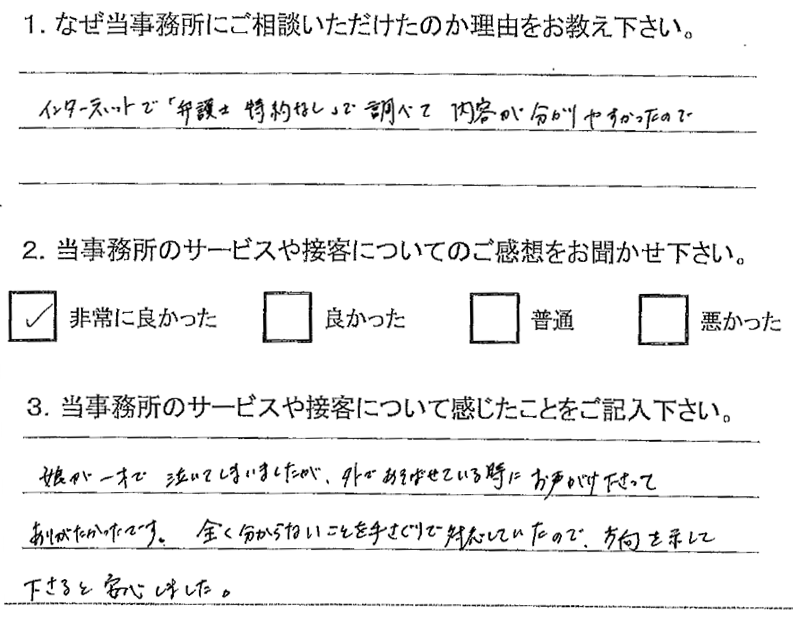 1. なぜ当事務所にご相談いただけたのか理由をお教え下さい。
インターネットで「弁護士 特約なし」で調べて 内容が分かりやすかったので
2. 当事務所のサービスや接客についてのご感想をお聞かせ下さい。
✓ 非常に良かった 良かった 普通 悪かった
3. 当事務所のサービスや接客について感じたことをご記入下さい。
娘が一才で 泣いてしまいましたが、外であそばせている時に お声がけ下さって
ありがたかったです。 全く分からないことを手さぐりで対応していたので、方向を示して
下さると安心しました。